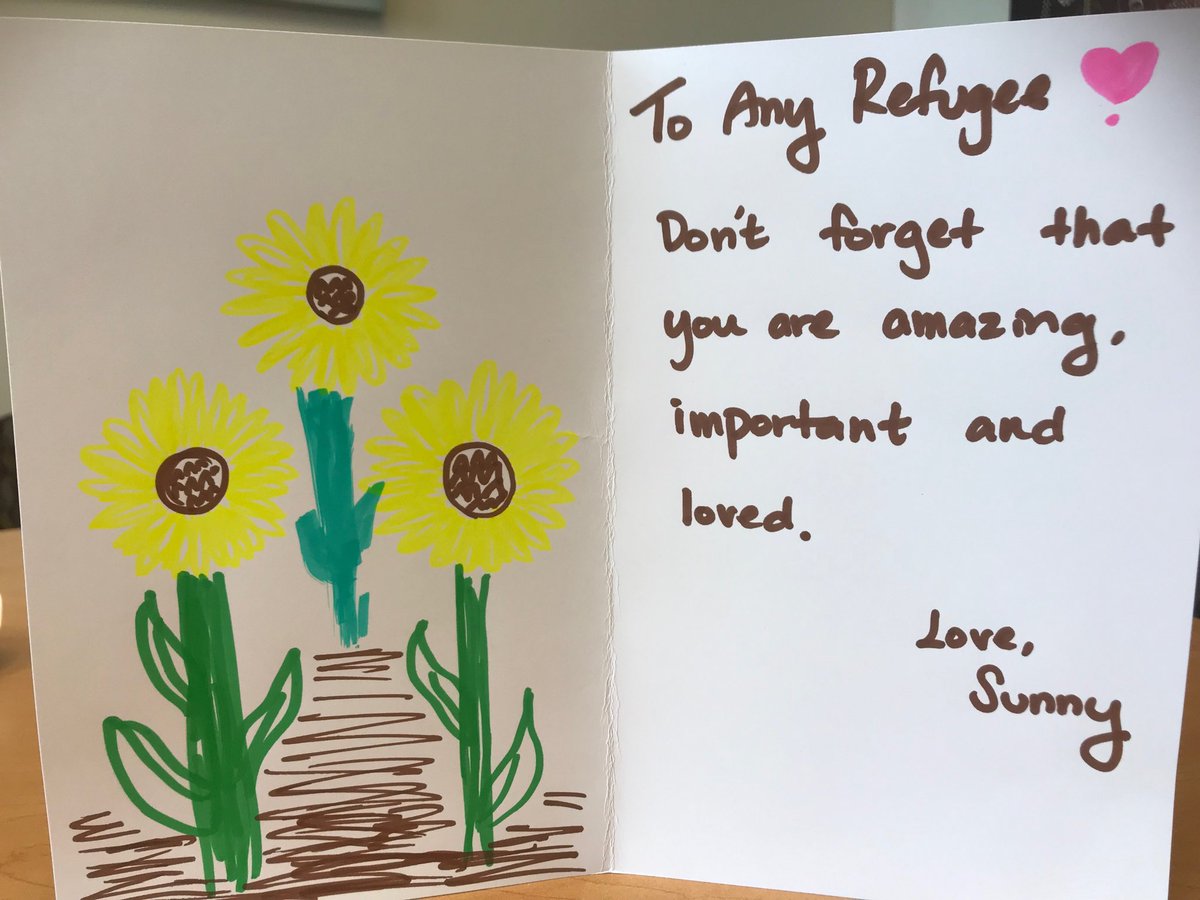 To Any Refugee
Don't forget that
you are amazing,
important and
loved.
Love,
Sunny